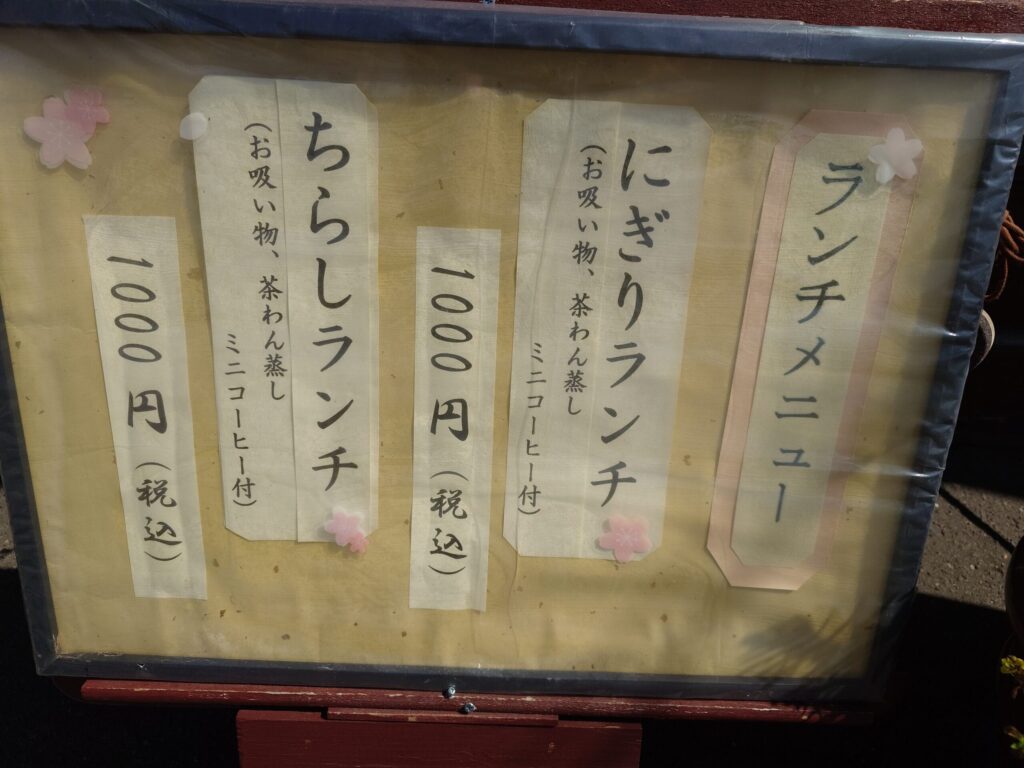 ランチメニュー
にぎりランチ
(お吸い物、茶わん蒸し
ミニコーヒー付)
1000円(税込)
ちらしランチ
(お吸い物、茶わん蒸し
ミニコーヒー付)
1000円(税込)